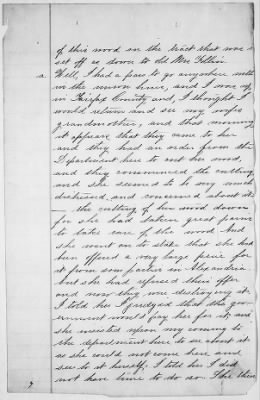 of this wood on the tract that was
set off as dower to old Mrs.
a. Well, I had a pass to go anywhere with
in the union lines, and I was up
in Fairfax County and, I thought I
would return and see my wifes
grandmother, and that morning
it appears that they came to her
and they had an order from the
Department here to cut her wood,
and they commenced the cutting
and she seemed to be very much
distressed, and concerned about it
the cutting of her wood down
for she had taken great pains
to take care of the wood. And
she went on to state that she had
been offered a very large price for
it from some parties in Alexandria
but she had refused their offer
and now they were destroying it.
I told her I judged that the gov-
ernment would pay her for it, and
she insisted upon my coming to
the department here to see about it
as she could not come here and
see to it herself. I told her I did
not have time to do so. She then